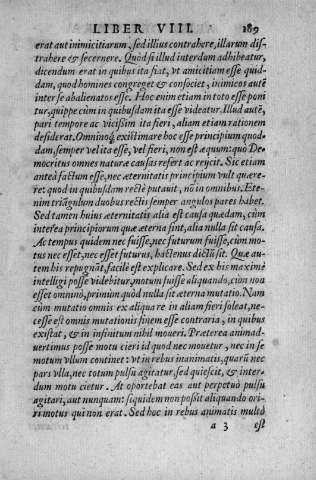 LIBER VIII. 189
erat aut inimicitiarum, sed illius contrahere, illarum dis-
trahere & secernere. Quòd si illud interdum adhibeatur,
dicendum erat in quibus ita fiat, vt amicitiam esse quid-
dam, quod homines congreget & consociet, inimicos autē
inter se abalienatos esse. Hoc enim etiam in toto esse poni
tur, quippe cùm in quibusdam ita esse videatur. Illud autē,
pari tempore ac vicissim ita fieri, aliam etiam rationem
desiderat. Omninoq́; existimare hoc esse principium quod-
dam, semper vel ita esse, vel fieri, non est æquum: quò De-
mocritus omnes naturæ causas refert ac reijcit. Sic etiam
anteà factum esse, nec æternitatis principium vult quære-
re: quod in quibusdam rectè putauit, nō in omnibus. Ete-
nim triāgulum duobus rectis semper angulos pares habet.
Sed tamen huius æternitatis alia est causa quædam, cùm
interea principiorum quæ æterna sint, alia nulla sit causa.
Ac tempus quidem nec fuisse, nec futurum fuisse, cùm mo-
tus nec esset, nec esset futurus, hactenus dictū sit. Quæ au-
tem his repugnāt, facilè est explicare. Sed ex his maximè
intelligi posse videbitur, motum fuisse aliquando, cùm nō
esset omninò, primùm quòd nulla sit æterna mutatio. Nam
cùm mutatio omnis ex aliqua re in aliam fieri soleat, ne-
cesse est omnis mutationis finem esse contraria, in quibus
existat, & in infinitum nihil moueri. Præterea animad-
uertimus posse motu cieri id quod nec mouetur, nec in se
motum vllum continet: vt in rebus inanimatis, quarū nec
pars vlla, nec totum pulsu agitatur, sed quiescit, & inter-
dum motu cietur. At oportebat eas aut perpetuò pulsu
agitari, aut nunquam: siquidem non possit aliquando ori-
ri motus qui non erat. Sed hoc in rebus animatis multò
a 3 est